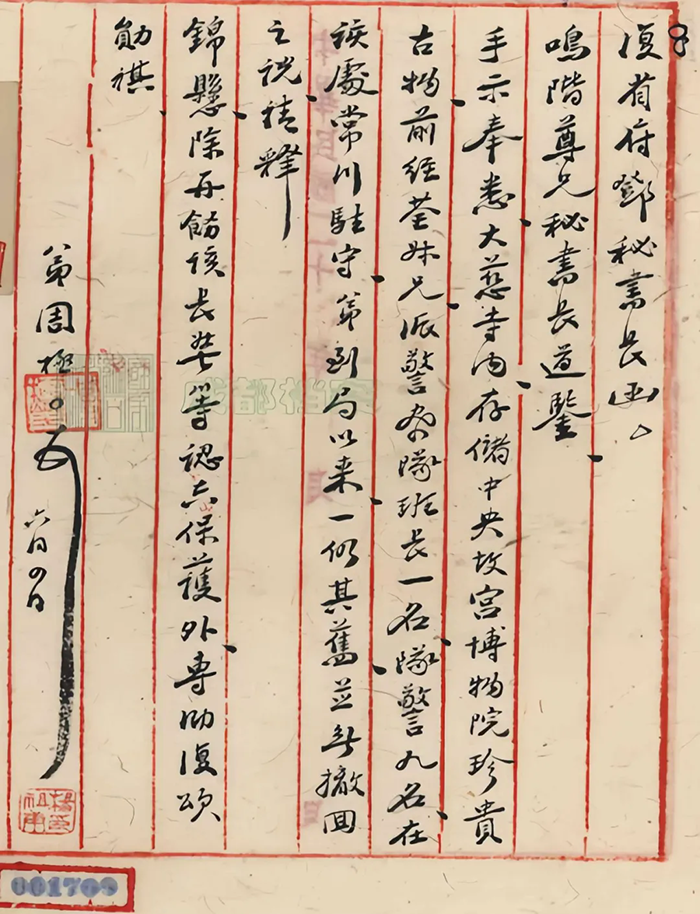 復省府鄧秘書長函
鳴階尊兄秘書長道鑒
手示奉悉大慈寺內存儲中央故宮博物院珍貴
古物前經荃妹兄派警察隊班長一名隊警九名在
該處常川駐守弟到局以来一仍其舊並無撤回
之説請釋
錦懸除再飭該長警等認真保護外專此復頌
勛祺
弟周極
六月四日
成都档案
001709